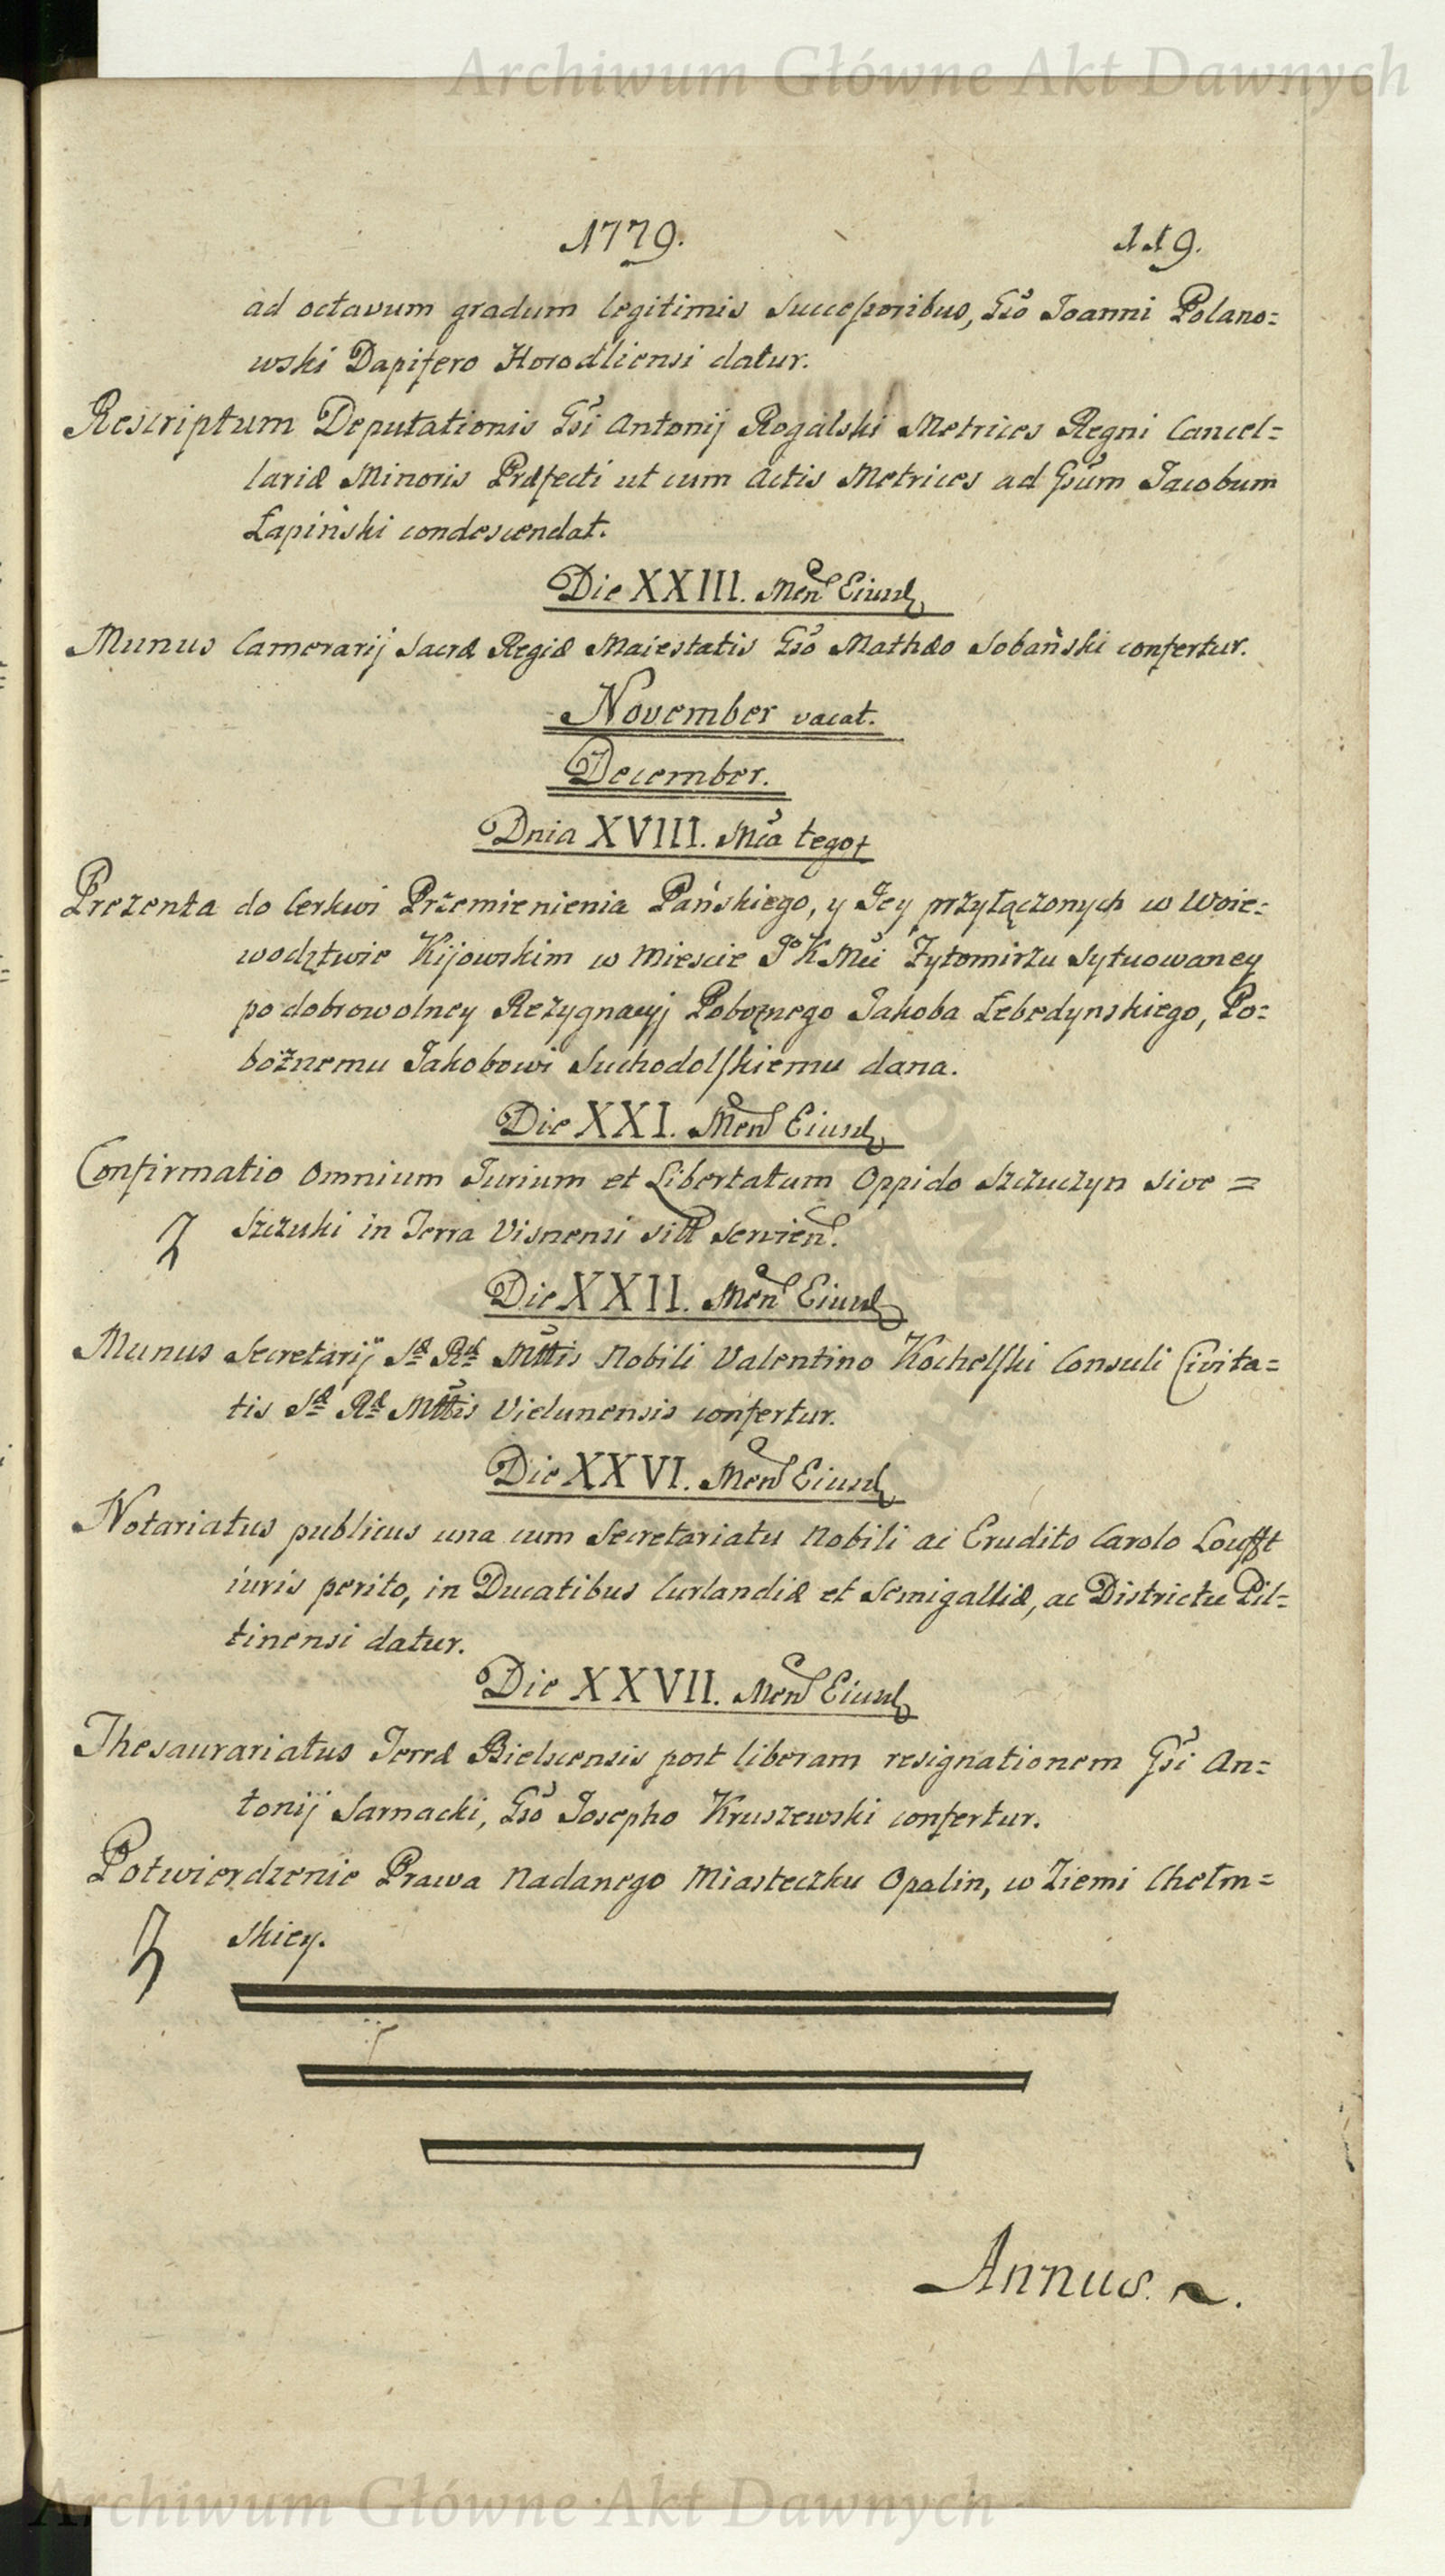 Archiwum Główne Akt Dawnych
1779. 119.
ad octavum gradum legitimis Successoribus, Gso Joanni Polano=
wski Dapifero Horodliensi datur.
Rescriptum Deputationis Gsi Antonij Rogalski Metrices Regni Cancel=
lariæ Minoris Præfecti ut cum Actis Metrices ad Gsum Jacobum
Łapiński condescendat.
Die XXIII. Men Eiusd
Munus Camerarij Sacræ Regiæ Maiestatis Gso Mathæo Sobański confertur.
November vacat.
December.
Dnia XVIII. Mca tegoż
Prezenta do Cerkwi Przemienienia Pańskiego, y Jey przyłączonych w Woie=
wodztwie Kijowskim w Miescie JoKMci Żytomirzu Sytuowaney
po dobrowolney Rezygnacyj Pobożnego Jakoba Lebedynskiego, Po=
bożnemu Jakobowi Suchodolskiemu dana.
Die XXI. Men Eiusd
Confirmatio Omnium Jurium et Libertatum Oppido Szczuczyn sive =
Szczuki in Terra Visnensi sitt servien.
Die XXII. Men Eiusd
Munus Secretarij Sæ Ræ Mttis Nobili Valentino Kochelski Consuli Civita=
tis Sæ Ræ Mttis Vielunensis confertur.
Die XXVI. Men Eiusd
Notariatus publicus una cum Secretariatu Nobili ac Erudito Carolo
iuris perito, in Ducatibus Curlandiæ et Semigalliæ, ac Districtu Pil=
tinensi datur.
Die XXVII. Men Eiusd
Thesaurariatus Terræ Bielscensis post liberam resignationem Gsi An=
tonij Sarnacki, Gso Josepho Kruszewski confertur.
Potwierdzenie Prawa Nadanego Miasteczku Opalin, w Ziemi Chełm=
skiey.
Annus.
Archiwum Główne Akt Dawnych